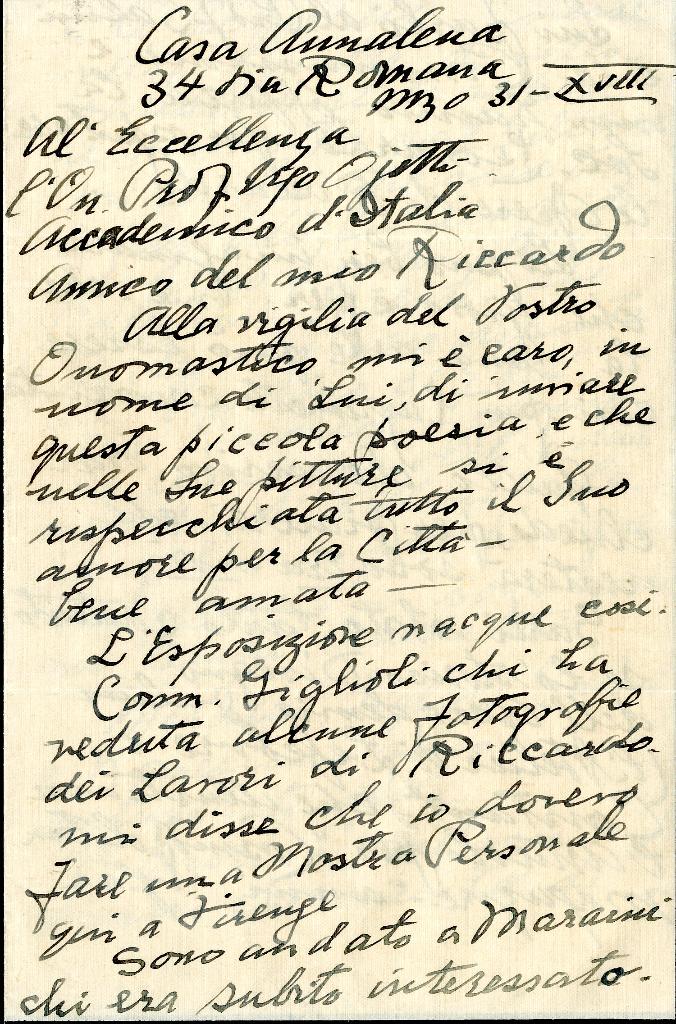 Casa Annalena
34 Via Romana
Mzo 31-XVIII
Al' Eccellenza
l'On. Prof Ugo Ojetti-
Accademico d'Italia
Amico del mio Riccardo
Alla vigilia del Vostro
Onomastico mi è caro, in
nome di Lui, di inviare
questa piccola poesia, e che
nelle Sue pitture si è
rispecchiata tutto il Suo
amore per la Città-
bene amata-
L'Esposizione nacque così.
Comm. Giglioli chi ha
veduta alcune Fotografie
dei Lavori di Riccardo.
mi disse che io dovero
fare una Mostra Personale
qui a Firenze
Sono andato a Maraini
chi era subito interessato.